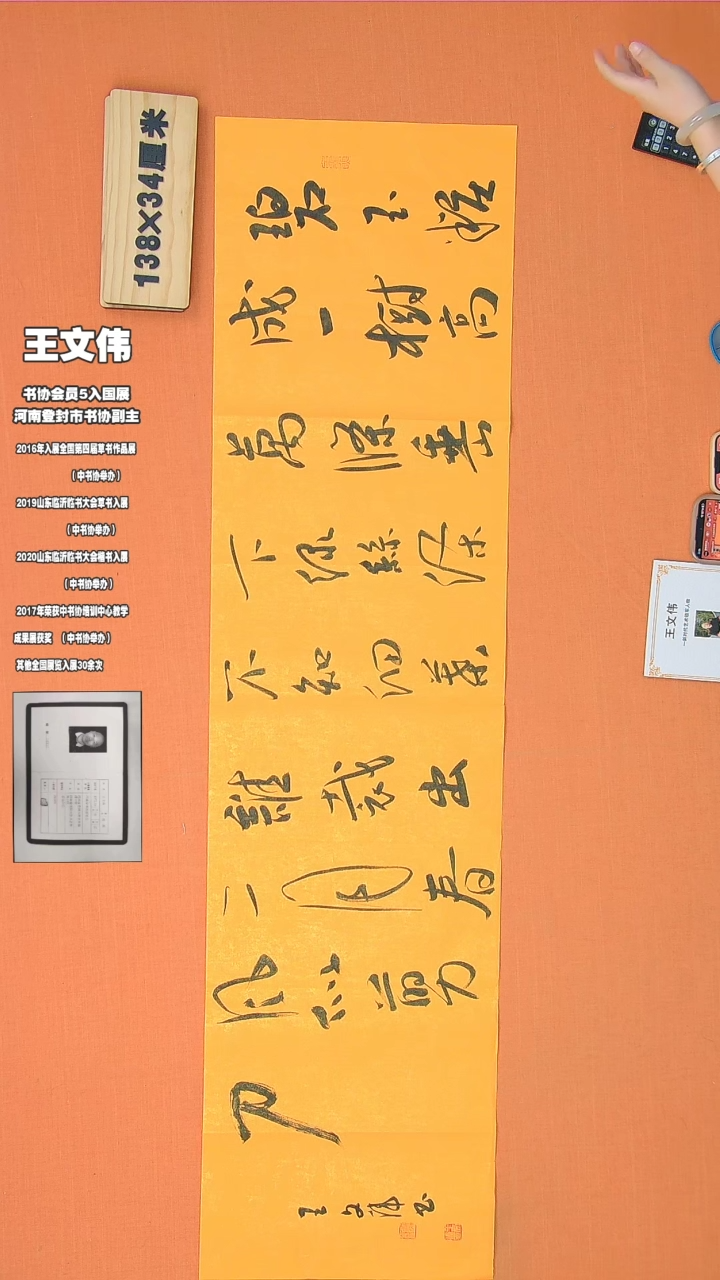 碧玉妝
成一樹高
萬條垂
下綠絲絛
不知細葉
誰裁出
二月春
風似剪
刀
王文偉書
138×34厘米
王文伟
书协会员5入国展
河南登封市书协副主
2016年入展全国第四届草书作品展
（中书协举办）
2019山东临沂临书大会草书入展
（中书协举办）
2020山东临沂临书大会楷书入展
（中书协举办）
2017年荣获中书协培训中心教学
成果展获奖 （中书协举办）
其他全国展览入展30余次
王文伟